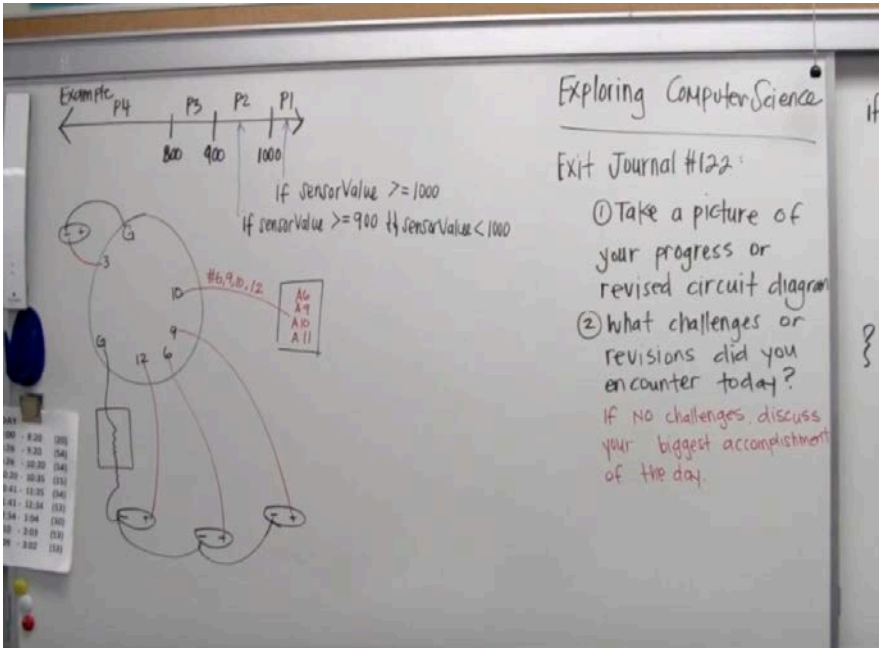 Example
P4 P3 P2 P1
800 900 1000
if sensorValue >= 1000
if sensorValue >= 900 && sensorValue < 1000
- +
G
3
10
#6,9,10,12
A6
A9
A10
A11
9
G
12 6
- +
- +
- +
Exploring Computer Science
Exit Journal #122:
① Take a picture of
your progress or
revised circuit diagram
② What challenges or
revisions did you
encounter today?
If No challenges, discuss
your biggest accomplishment
of the day.
if
}
DAY
8:20 (20)
9:20 (54)
10:20 (54)
10:35 (15)
11:35 (54)
12:34 (53)
1:04 (30)
2:03 (53)
3:02 (53)